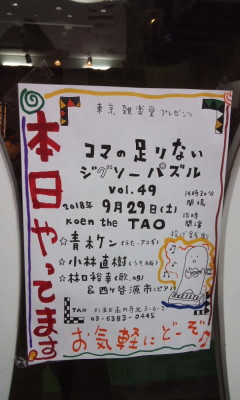 東京 雑楽堂プレゼンツ
本日やってます
コマの足りない
ジグソーパズル
vol.49
2018年 9月29日(土)
Koen the TAO
14時30分
開場
15時
開演
投げ銭制
☆青木ケン(うた・アコギ)
☆小林直樹(うた
☆林口裕幸(歌,
&四ヶ谷源市(ピアノ)
TAO
03-6383-0445
お気軽にどーぞ